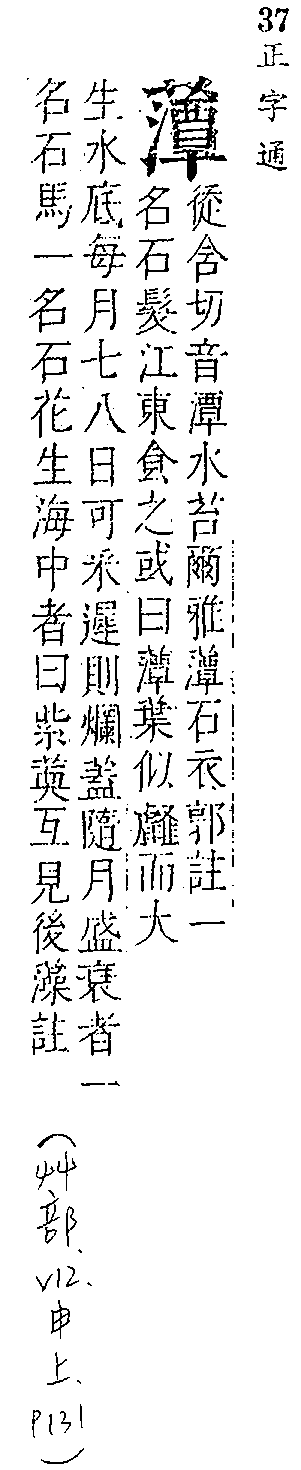 37
正字通
藫
從含切音潭水苔爾雅藫石衣郭註一
名石髮江東食之或曰藫葉似䪥而大
生水底每月七八日可采遲則爛蓋隨月盛衰者一
名石馬一名石花生海中者曰紫䓲互見後藻註
(艸部、V12、申上、P131)